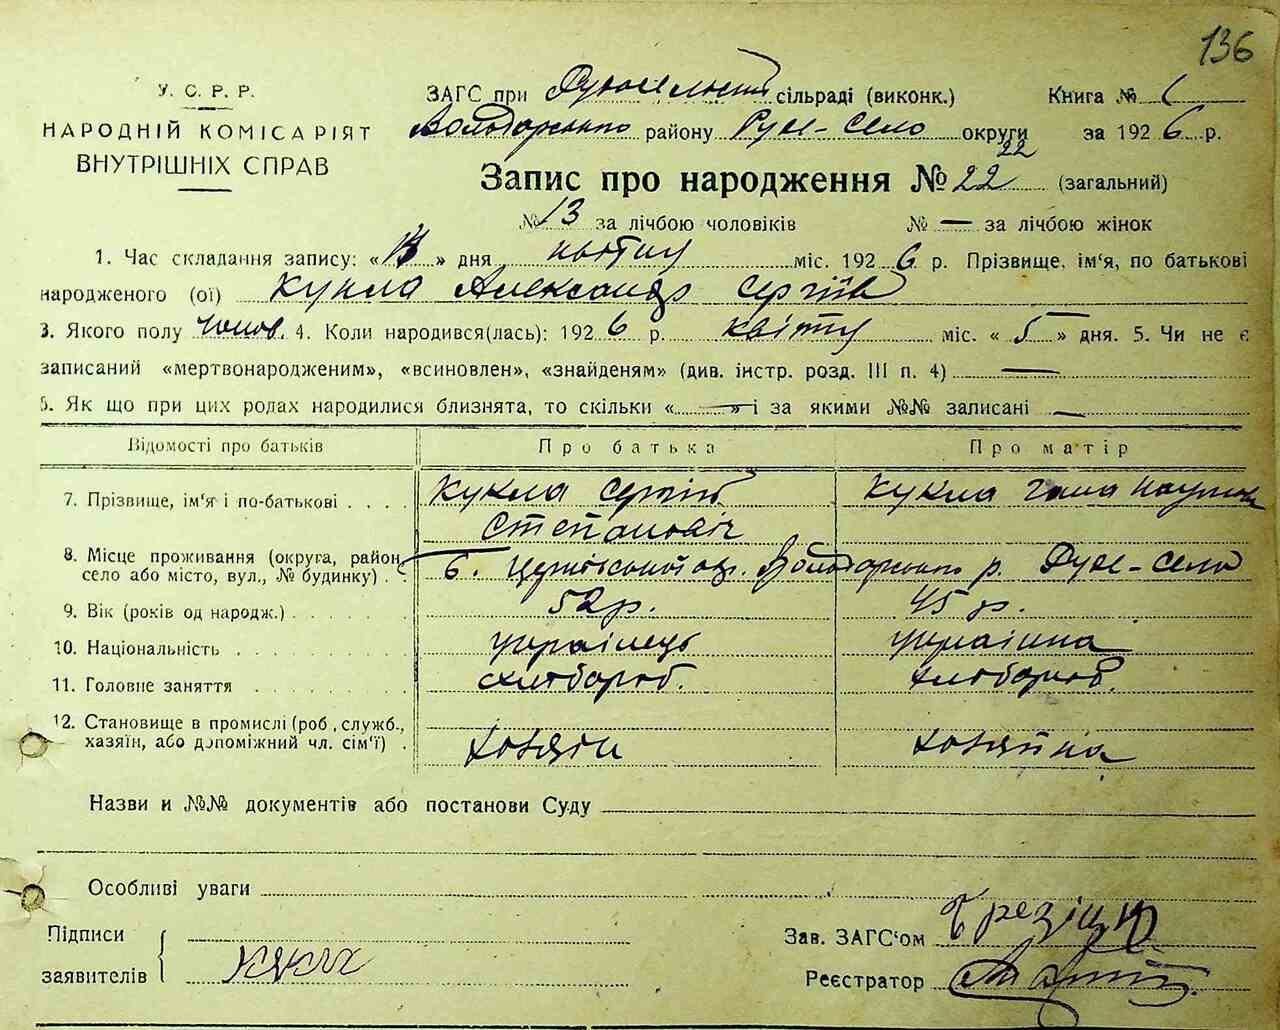 136
У. С. Р. Р.
НАРОДНІЙ КОМІСАРІЯТ
ВНУТРІШНІХ СПРАВ
ЗАГС при сільраді (виконк.) Книга № 1
Володарського району Руде-Село округи за 1926 р.
Запис про народження № 22 22 (загальний)
№ 13 за лічбою чоловіків № — за лічбою жінок
1. Час складання запису: « » дня міс. 1926 р. Прізвище, ім'я, по батькові
народженого (ої) Кукла Александр Сергіїв
3. Якого полу чолов. 4. Коли народився(лась): 1926 р. квітня міс. «5» дня. 5. Чи не є
записаний «мертвонародженим», «всиновлен», «знайденям» (див. інстр. розд. III п. 4) —
6. Як що при цих родах народилися близнята, то скільки «—» і за якими №№ записані —
Відомості про батьків Про батька Про матір
7. Прізвище, ім'я і по-батькові . . . . Кукла Сергій Степанович Кукла Гана Наумовна
8. Місце проживання (округа, район, село або місто, вул., № будинку) . Б. Церківської окр. Володарського р. Руде-Село
9. Вік (років од народж.) . . . . . . 52 р. 45 р.
10. Національність . . . . . . українець українка
11. Головне заняття . . . . . . хлібороб. хлібороб.
12. Становище в промислі (роб., служб., хазяїн, або допоміжний чл. сім'ї) . хозяін хозяйка
Назви и №№ документів або постанови Суду
Особливі уваги
Підписи
заявителів Кукла
Зав. ЗАГС'ом
Реєстратор